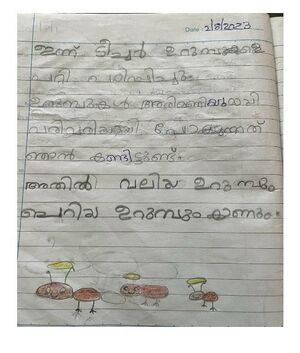 Date 2/8/2023
ഇന്ന് ടീച്ചർ ഉറുമ്പുകളെ
പറ്റി പഠിപ്പിച്ചു.
ഉറുമ്പുകൾ അരിമണിയുമായി
വരിവരിയായി പോകുന്നത്
ഞാൻ കണ്ടിട്ടുണ്ട്.
അതിൽ വലിയ ഉറുമ്പും
ചെറിയ ഉറുമ്പും കാണും.